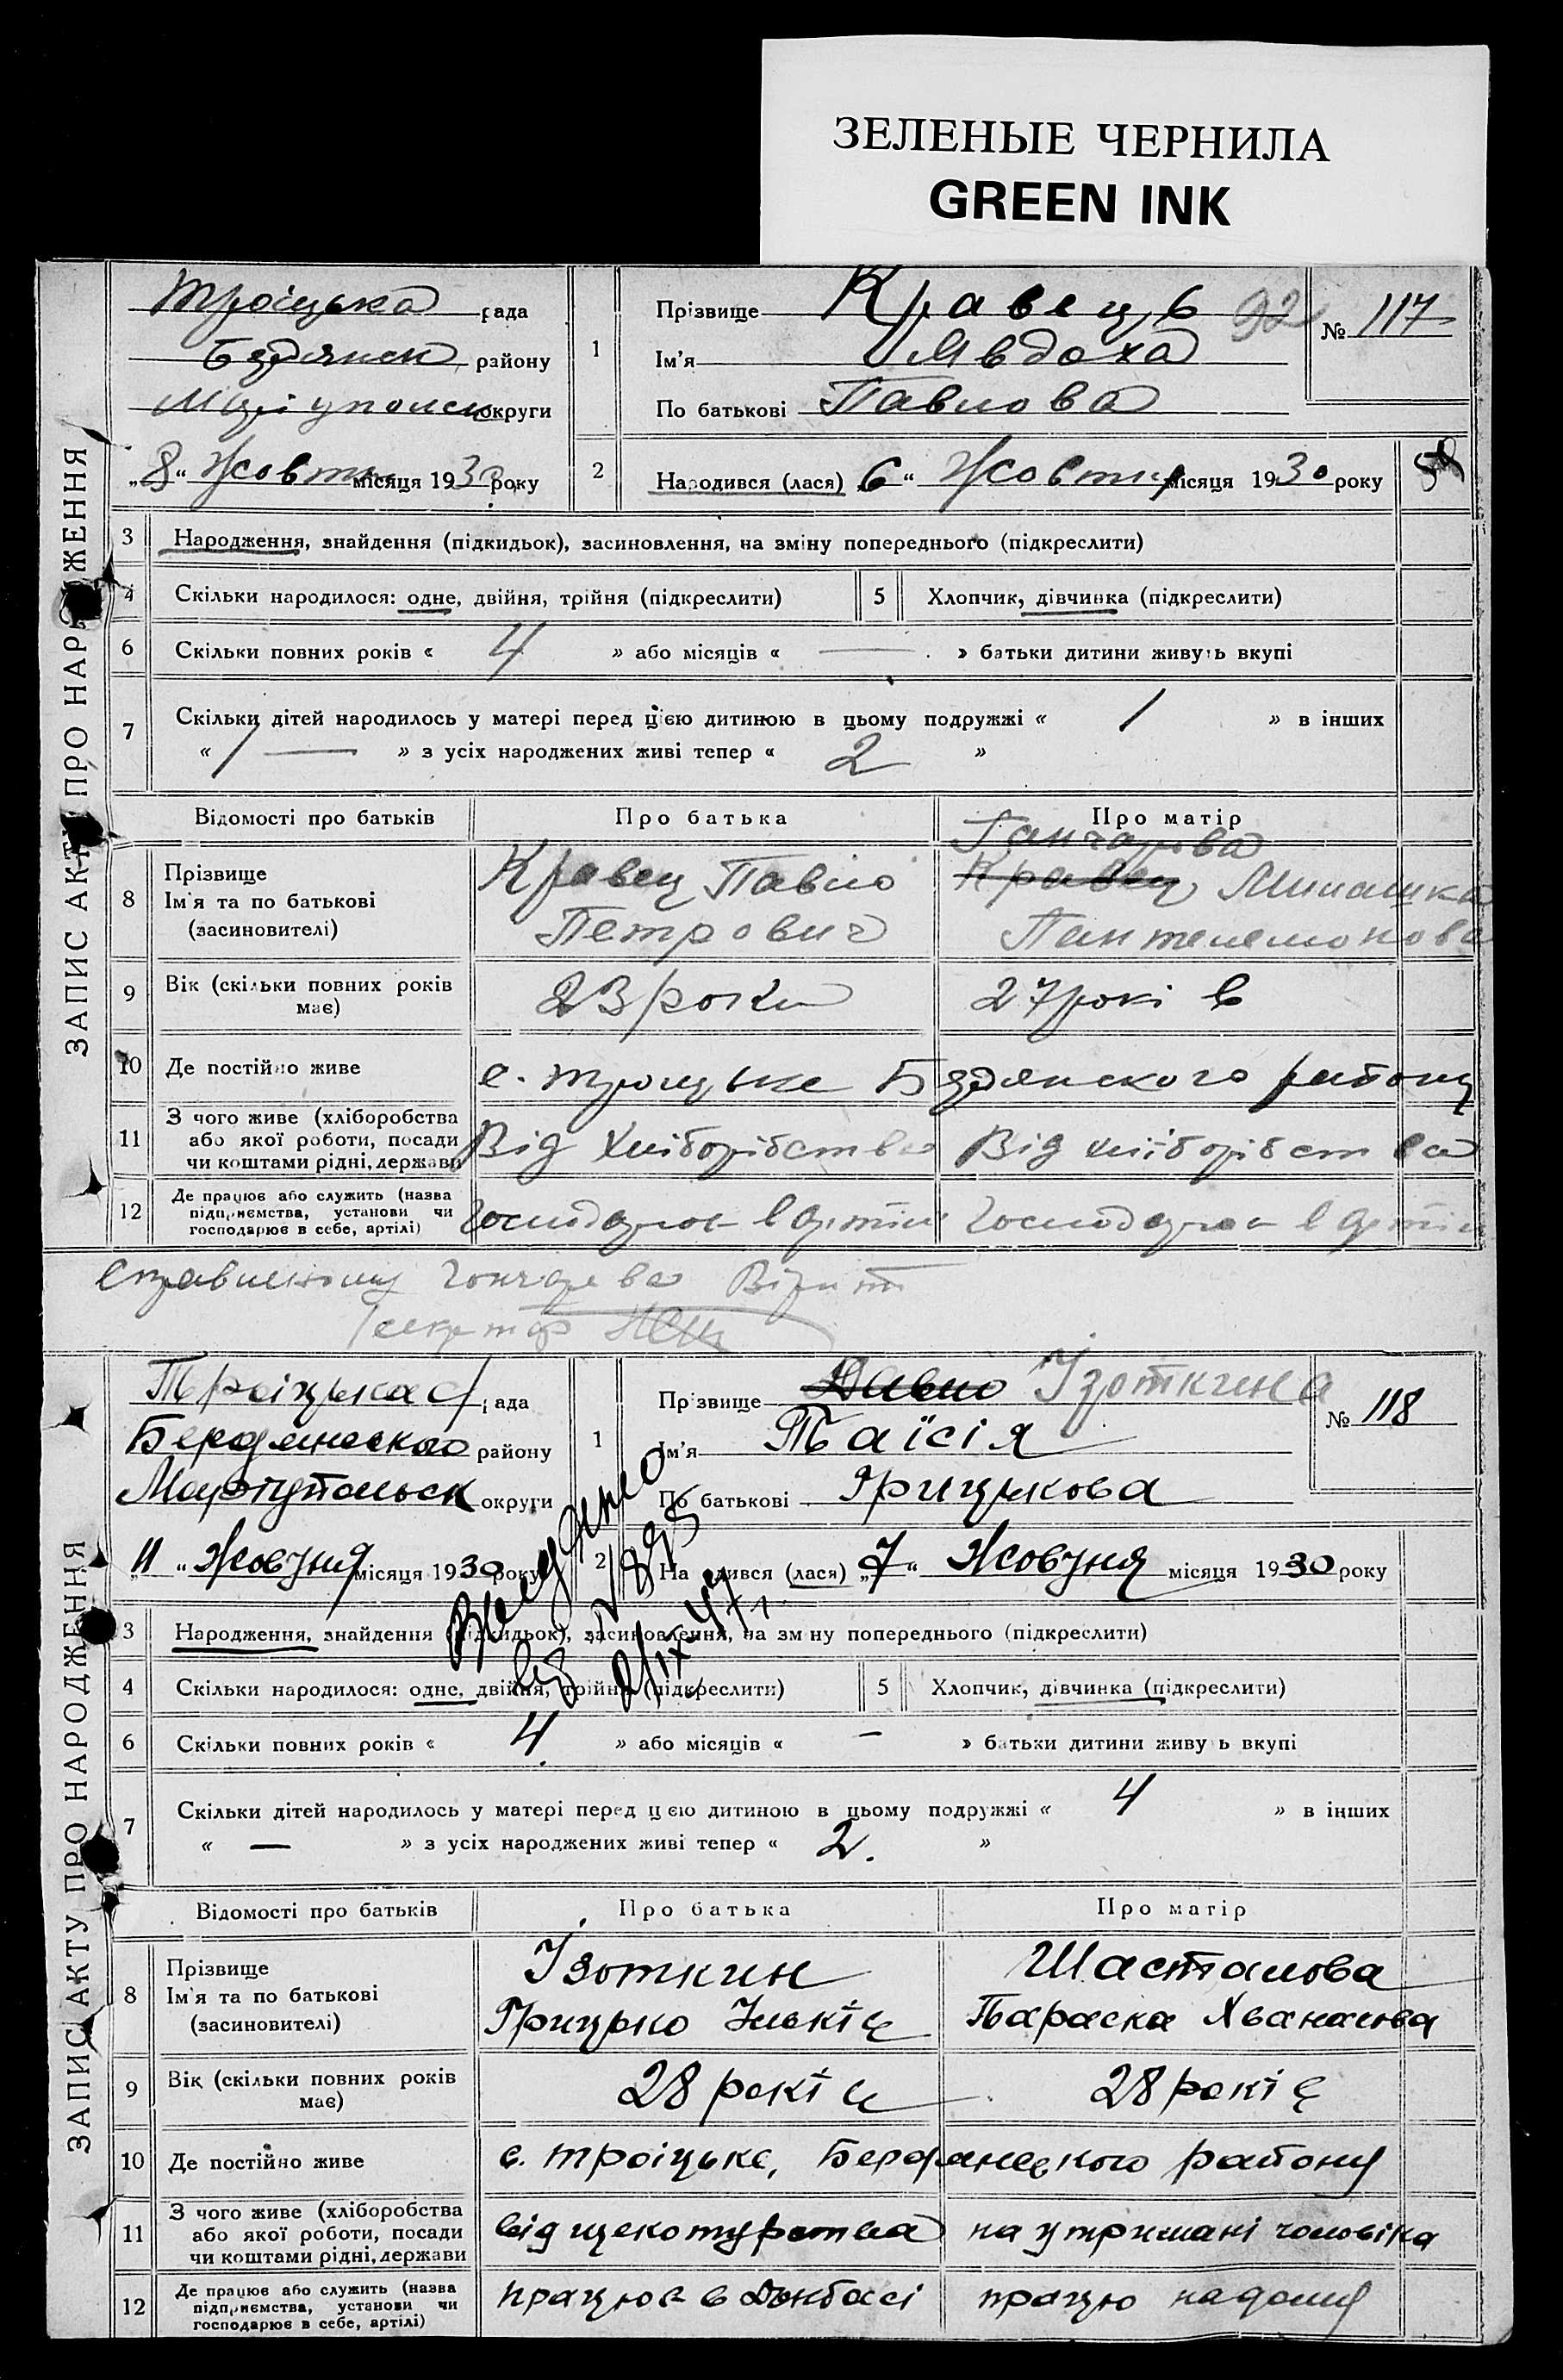 ЗЕЛЕНЫЕ ЧЕРНИЛА
GREEN INK
ЗАПИС АКТУ ПРО НАРОДЖЕННЯ
Троіцька рада
Бердянск району
Маріупольск округи
„8“ Жовтня місяця 1930 року
1
Прізвище Кравець 92
Ім'я Явдоха
По батькові Павлова
№ 117
2 Народився (лася) „6“ Жовтня місяця 1930 року
3 Народження, знайдення (підкидьок), засиновлення, на зміну попереднього (підкреслити)
4 Скільки народилося: одне, двійня, трійня (підкреслити)
5 Хлопчик, дівчинка (підкреслити)
6 Скільки повних років « 4 » або місяців « — » батьки дитини живуть вкупі
7 Скільки дітей народилось у матері перед цією дитиною в цьому подружжі « 1 » в інших
« 1 — » з усіх народжених живі тепер « 2 »
Відомості про батьків Про батька Про матір
8 Прізвище
Ім'я та по батькові
(засиновителі)
Кравец Павло
Петрович
Ганчарова
Кравец Минашка
Пантелемонова
9 Вік (скільки повних років
має)
23 роки 27 років
10 Де постійно живе с. Троіцьке Бердянского району
11 З чого живе (хліборобства
або якої роботи, посади
чи коштами рідні, держави
Від хліборібства Від хліборібства
12 Де працює або служить (назва
підприємства, установи чи
господарює в себе, артілі)
Господарює в артілі Господарює в артілі
Справленому Гончарева Вірить
Секретар
ЗАПИС АКТУ ПРО НАРОДЖЕННЯ
Троіцька с/рада
Бердянського району
Маріупольск округи
„11“ Жовтня місяця 1930 року
1
Прізвище Давно Ізоткина
Ім'я Таїсія
По батькові Грицькова
№ 118
2 Народився (лася) „7“ Жовтня місяця 1930 року
3 Народження, знайдення (підкидьок), засиновлення, на зміну попереднього (підкреслити)
4 Скільки народилося: одне, двійня, трійня (підкреслити)
5 Хлопчик, дівчинка (підкреслити)
6 Скільки повних років « 4 » або місяців « — » батьки дитини живуть вкупі
7 Скільки дітей народилось у матері перед цією дитиною в цьому подружжі « 4 » в інших
« — » з усіх народжених живі тепер « 2. »
Відомості про батьків Про батька Про матір
8 Прізвище
Ім'я та по батькові
(засиновителі)
Ізоткин
Грицько
Шасталова
Параска Хванасова
9 Вік (скільки повних років
має)
28 років 28 років
10 Де постійно живе с. Троіцьке, Бердянського району
11 З чого живе (хліборобства
або якої роботи, посади
чи коштами рідні, держави
від щекотурства на утримані чоловіка
12 Де працює або служить (назва
підприємства, установи чи
господарює в себе, артілі)
працює в Донбасі працю на дому